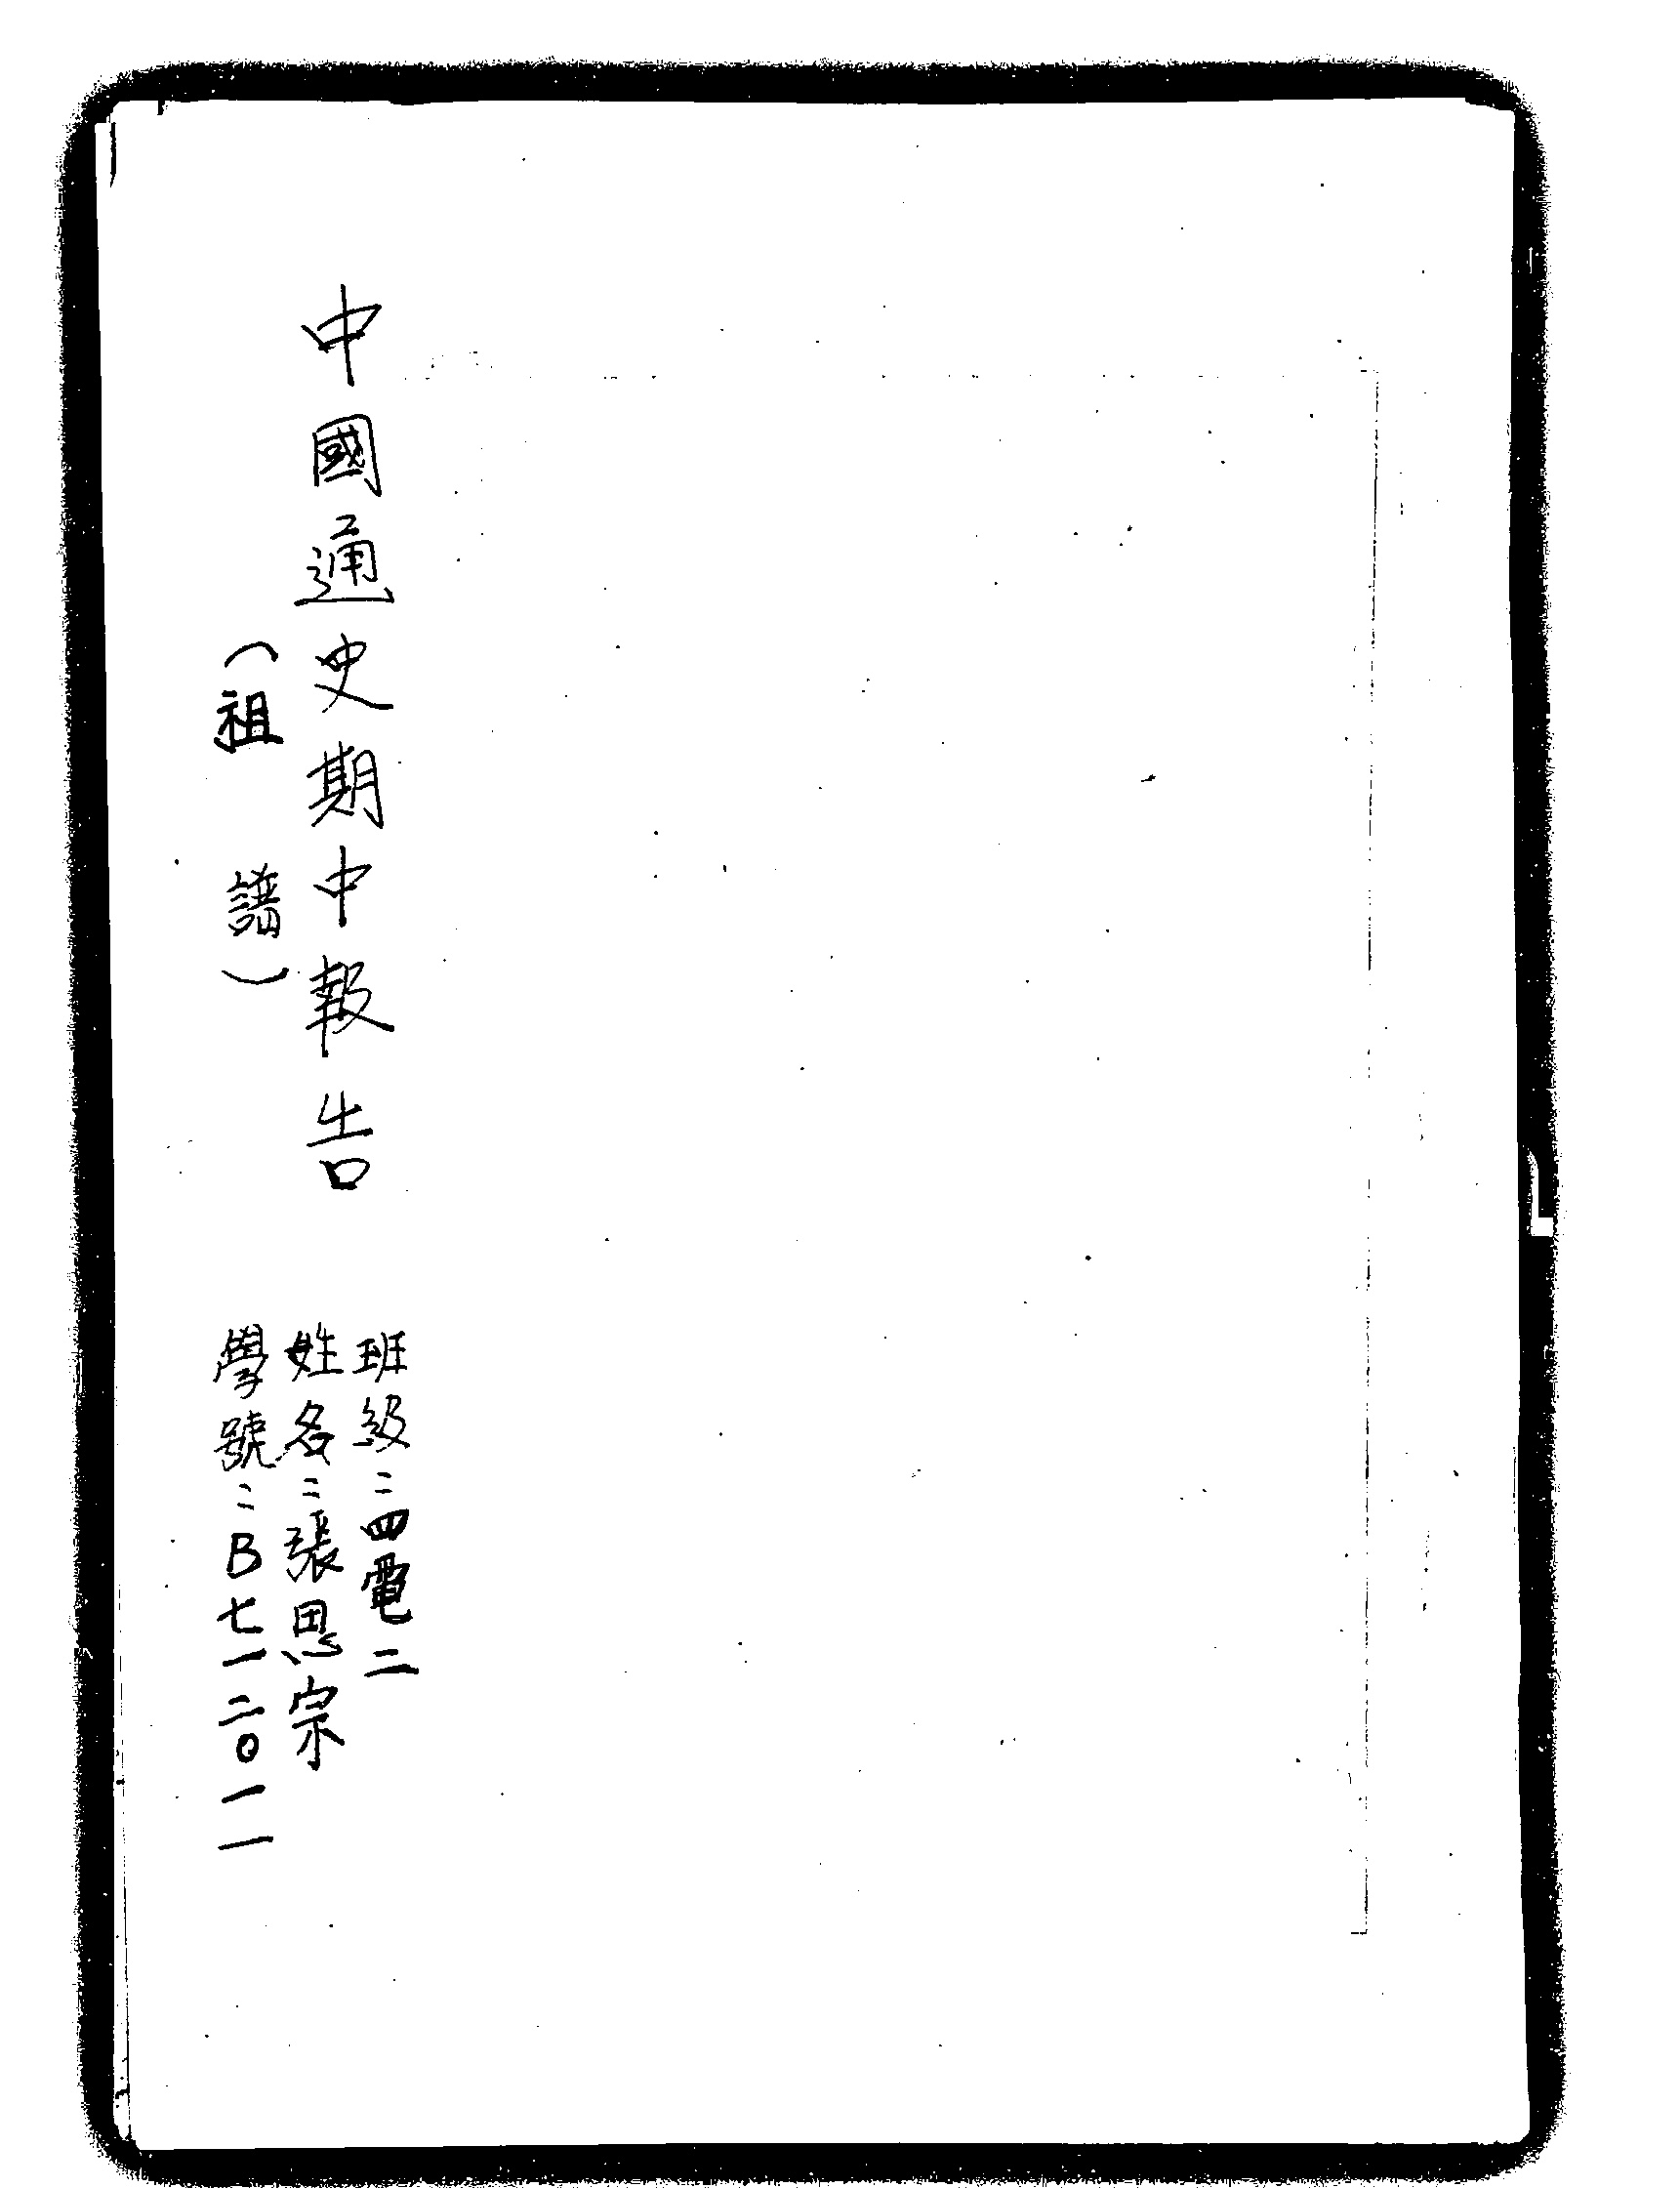 中國通史期中報告
(祖譜)
班級:四電二
姓名:張思宗
學號:B七一二0一一